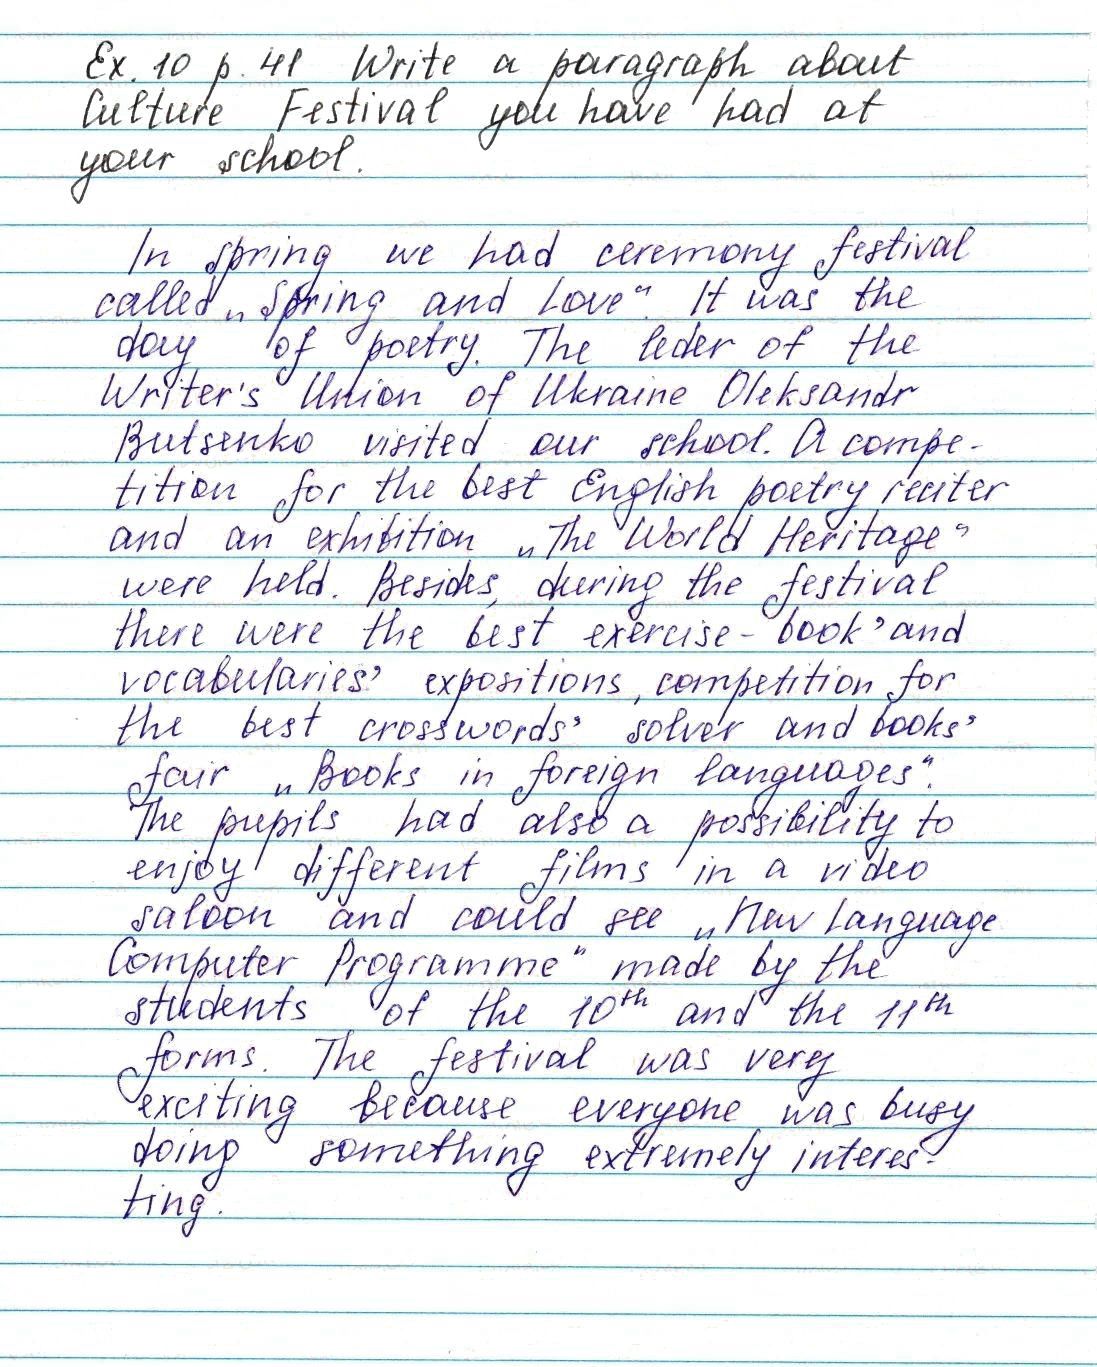 Ex. 10 p. 41 Write a paragraph about
Culture Festival you have had at
your school.
In spring we had ceremony festival
called „Spring and Love“. It was the
day of poetry. The leder of the
Writer's Union of Ukraine Oleksandr
Butsenko visited our school. A compe-
tition for the best English poetry reciter
and an exhibition „The World Heritage“
were held. Besides, during the festival
there were the best exercise-book’ and
vocabularies’ expositions, competition for
the best crosswords’ solver and books’
fair „Books in foreign languages“.
The pupils had also a possibility to
enjoy different films in a video
saloon and could see „New Language
Computer Programme“ made by the
students of the 10th and the 11th
forms. The festival was very
exciting because everyone was busy
doing something extremely interes-
ting.